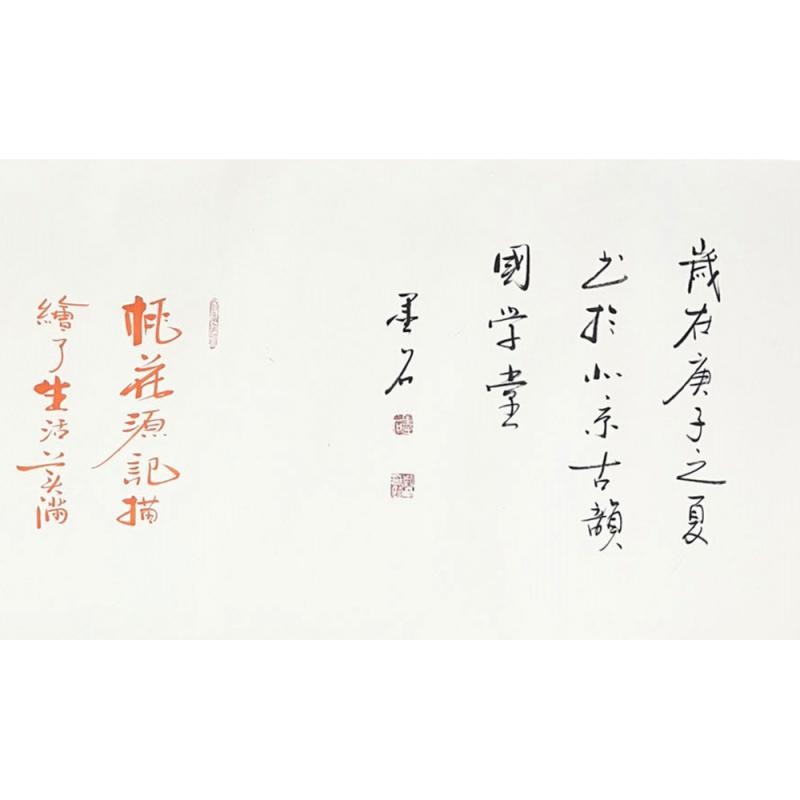 歲在庚子之夏
书於北京古韻
國学堂
墨石
桃花源記描
繪了生活美滿